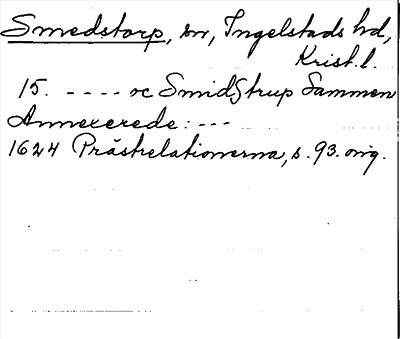 Smedstorp, sn, Ingelstads hd,
Krist. l.
15. ---- oc Smidstrup Sammen
Annexerede: ---
1624 Prästrelationerna, s. 93. orig.